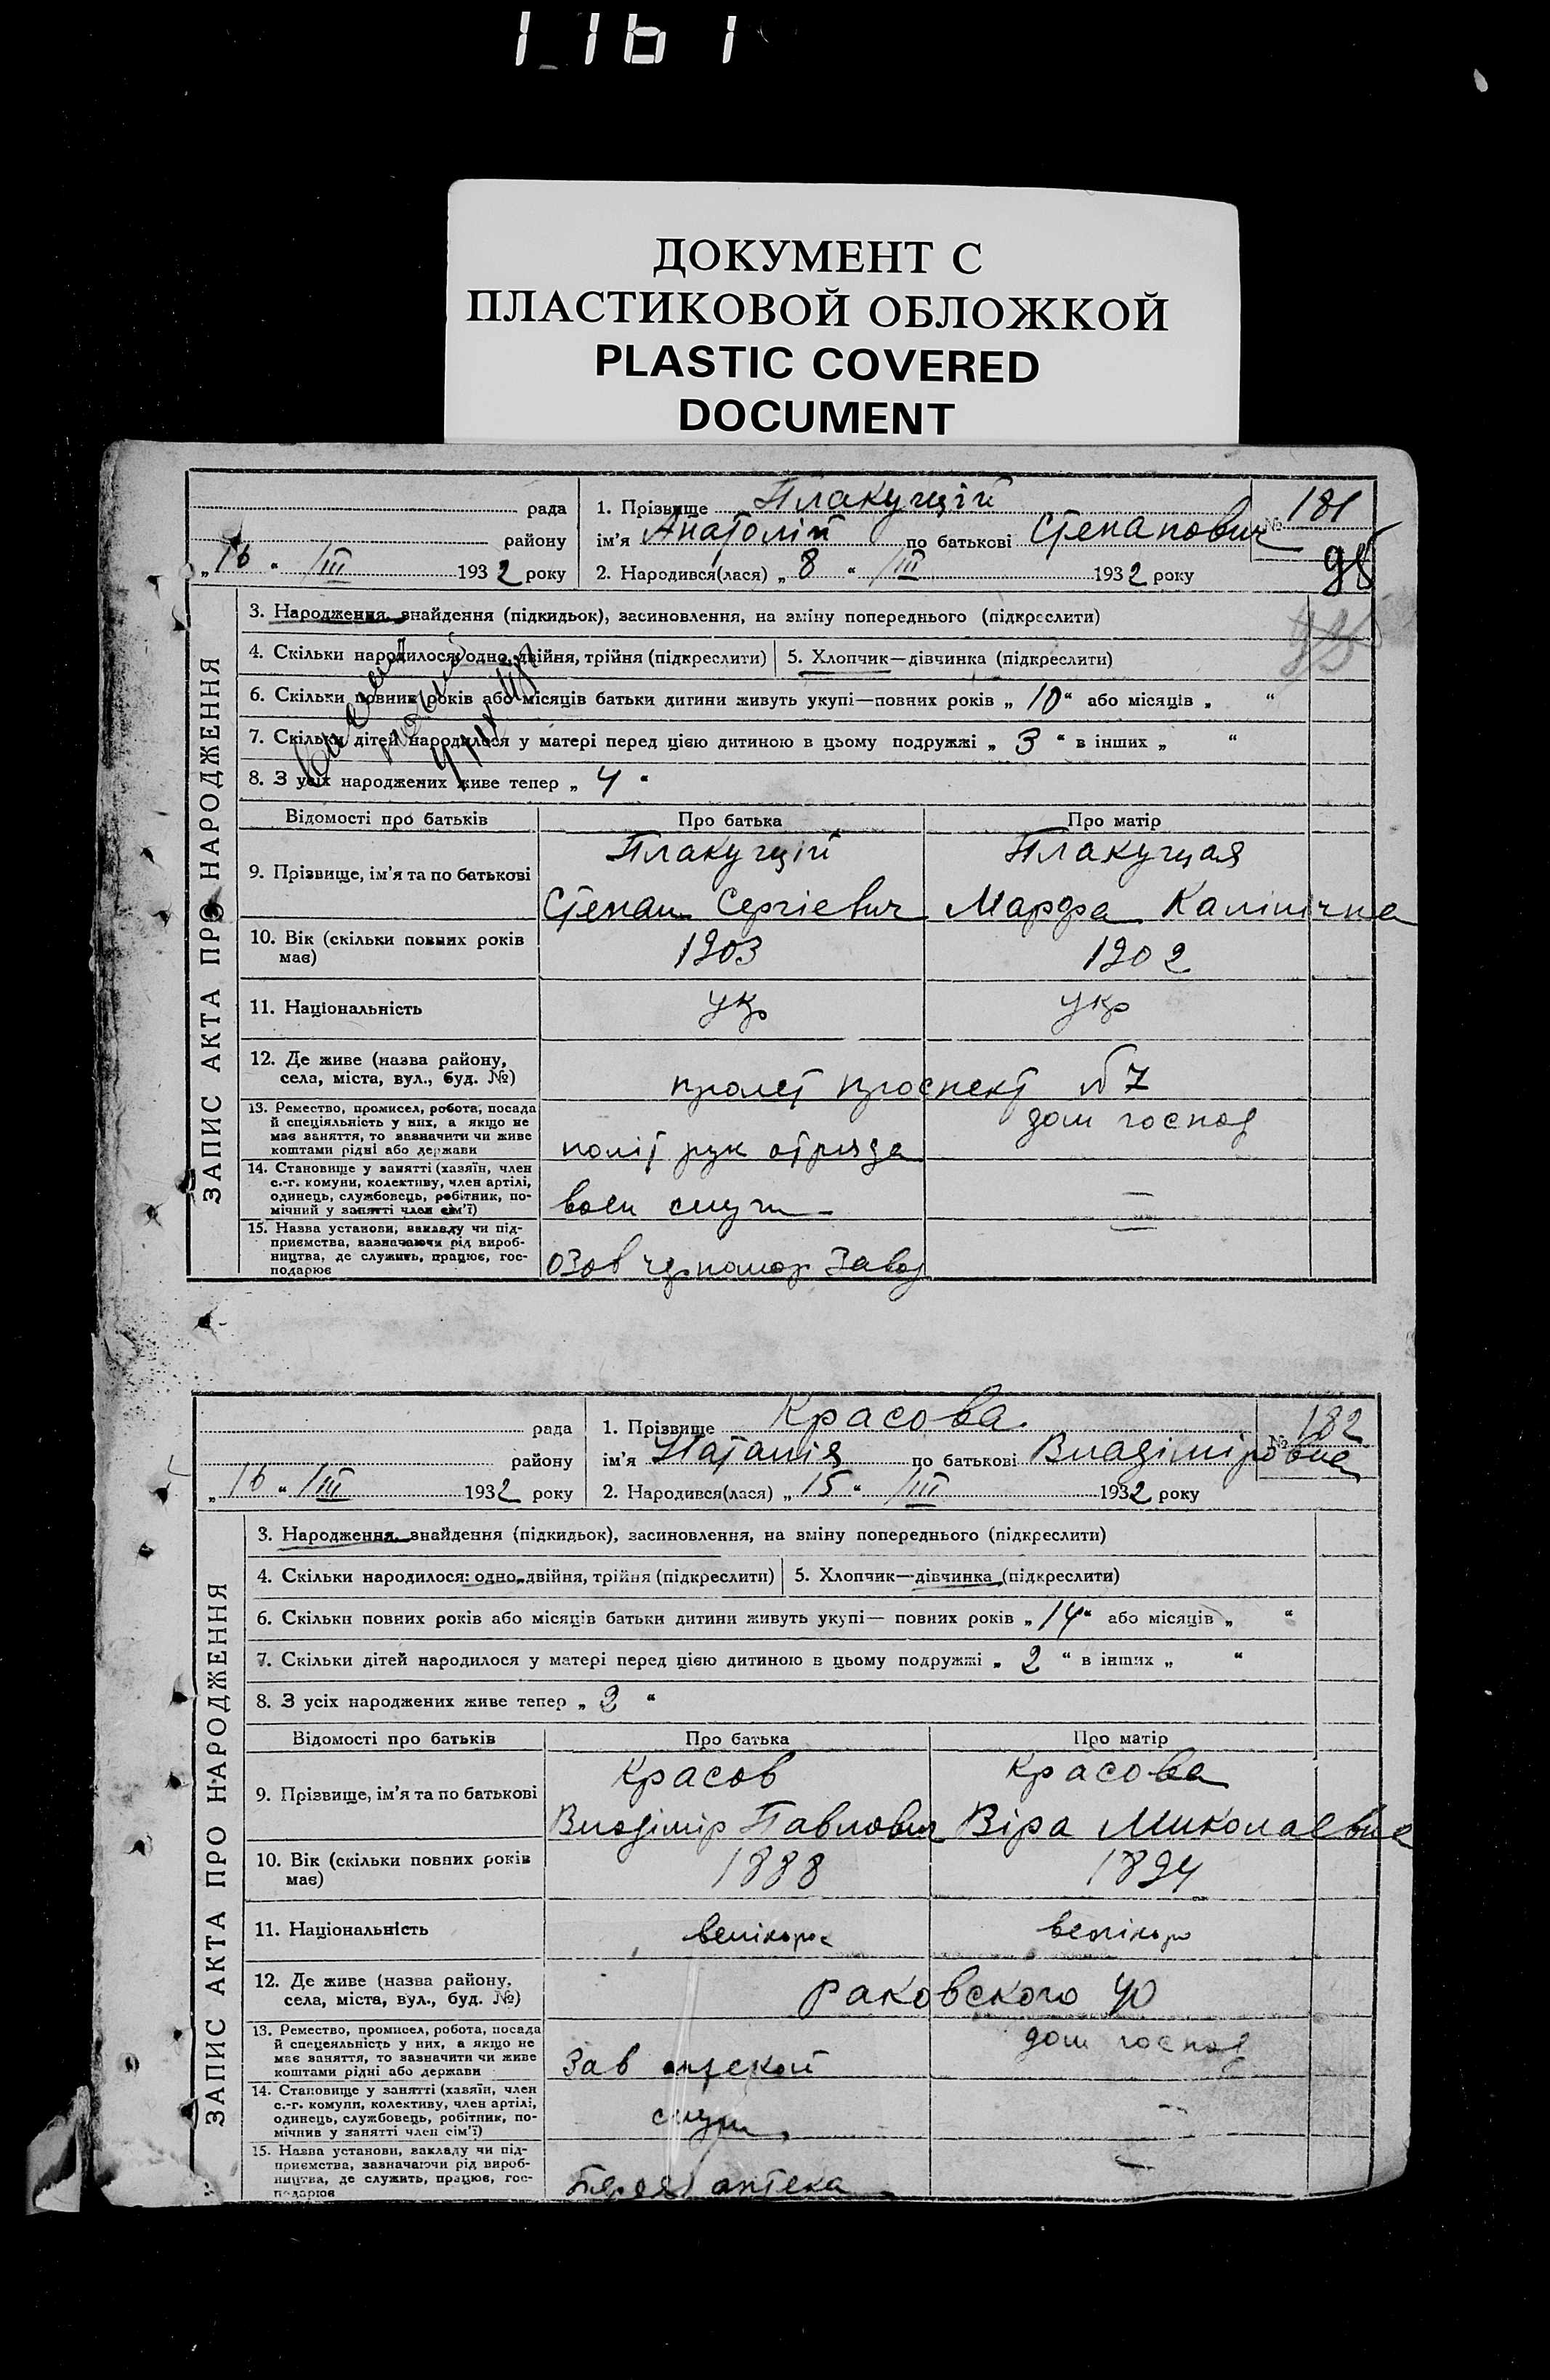 1161
ДОКУМЕНТ С
ПЛАСТИКОВОЙ ОБЛОЖКОЙ
PLASTIC COVERED
DOCUMENT
рада
району
„16“ /III 1932 року
1. Прізвище Плакущій
ім’я Анатолій по батькові Степанович
№ 181
2. Народився(лася) „8“ /III 1932 року
98
ЗАПИС АКТА ПРО НАРОДЖЕННЯ
3. Народження, знайдення (підкидьок), засиновлення, на зміну попереднього (підкреслити)
4. Скільки народилося: одно, двійня, трійня (підкреслити) 5. Хлопчик—дівчинка (підкреслити)
6. Скільки повних років або місяців батьки дитини живуть укупі—повних років „10“ або місяців „ “
7. Скільки дітей народилося у матері перед цією дитиною в цьому подружжі „3“ в інших „ “
8. З усіх народжених живе тепер „4“
Відомості про батьків Про батька Про матір
9. Прізвище, ім’я та по батькові
Плакущій
Степан Сергієвич
Плакущая
Марфа Калінічна
10. Вік (скільки повних років
має)
1903 1902
11. Національність укр укр
12. Де живе (назва району,
села, міста, вул., буд. №)
пролет проспект №7
13. Ремество, промисел, робота, посада
й спеціяльність у них, а якщо не
має заняття, то зазначити чи живе
коштами рідні або держави
політ рук отряда
дом господ
14. Становище у занятті (хазяїн, член
с.-г. комуни, колективу, член артілі,
одинець, службовець, робітник, по-
мічний у занятті член сім’ї)
воен служ —
15. Назва установи, закладу чи під-
приємства, зазначаючи рід вироб-
ництва, де служить, працює, гос-
подарює
—
рада
району
„16“ /III 1932 року
1. Прізвище Красова
ім’я Наталія по батькові Владіміровна
№ 182
2. Народився(лася) „15“ /III 1932 року
ЗАПИС АКТА ПРО НАРОДЖЕННЯ
3. Народження, знайдення (підкидьок), засиновлення, на зміну попереднього (підкреслити)
4. Скільки народилося: одно, двійня, трійня (підкреслити) 5. Хлопчик—дівчинка (підкреслити)
6. Скільки повних років або місяців батьки дитини живуть укупі— повних років „14“ або місяців „ “
7. Скільки дітей народилося у матері перед цією дитиною в цьому подружжі „2“ в інших „ “
8. З усіх народжених живе тепер „3“
Відомості про батьків Про батька Про матір
9. Прізвище, ім’я та по батькові
Красов
Владімір Павлович
Красова
Віра Миколаевна
10. Вік (скільки повних років
має)
1888 1894
11. Національність велікорос велікоро
12. Де живе (назва району,
села, міста, вул., буд. №)
Раковского 40
13. Ремество, промисел, робота, посада
й спецеяльність у них, а якщо не
має заняття, то зазначити чи живе
коштами рідні або держави
Зав аптекой
дом господ
14. Становище у занятті (хазяїн, член
с.-г. комуни, колективу, член артілі,
одинець, службовець, робітник, по-
мічнив у занятті член сім’ї)
служ —
15. Назва установи, закладу чи під-
приємства, зазначаючи рід вироб-
ництва, де служить, працює, гос-
подарює
аптека
—